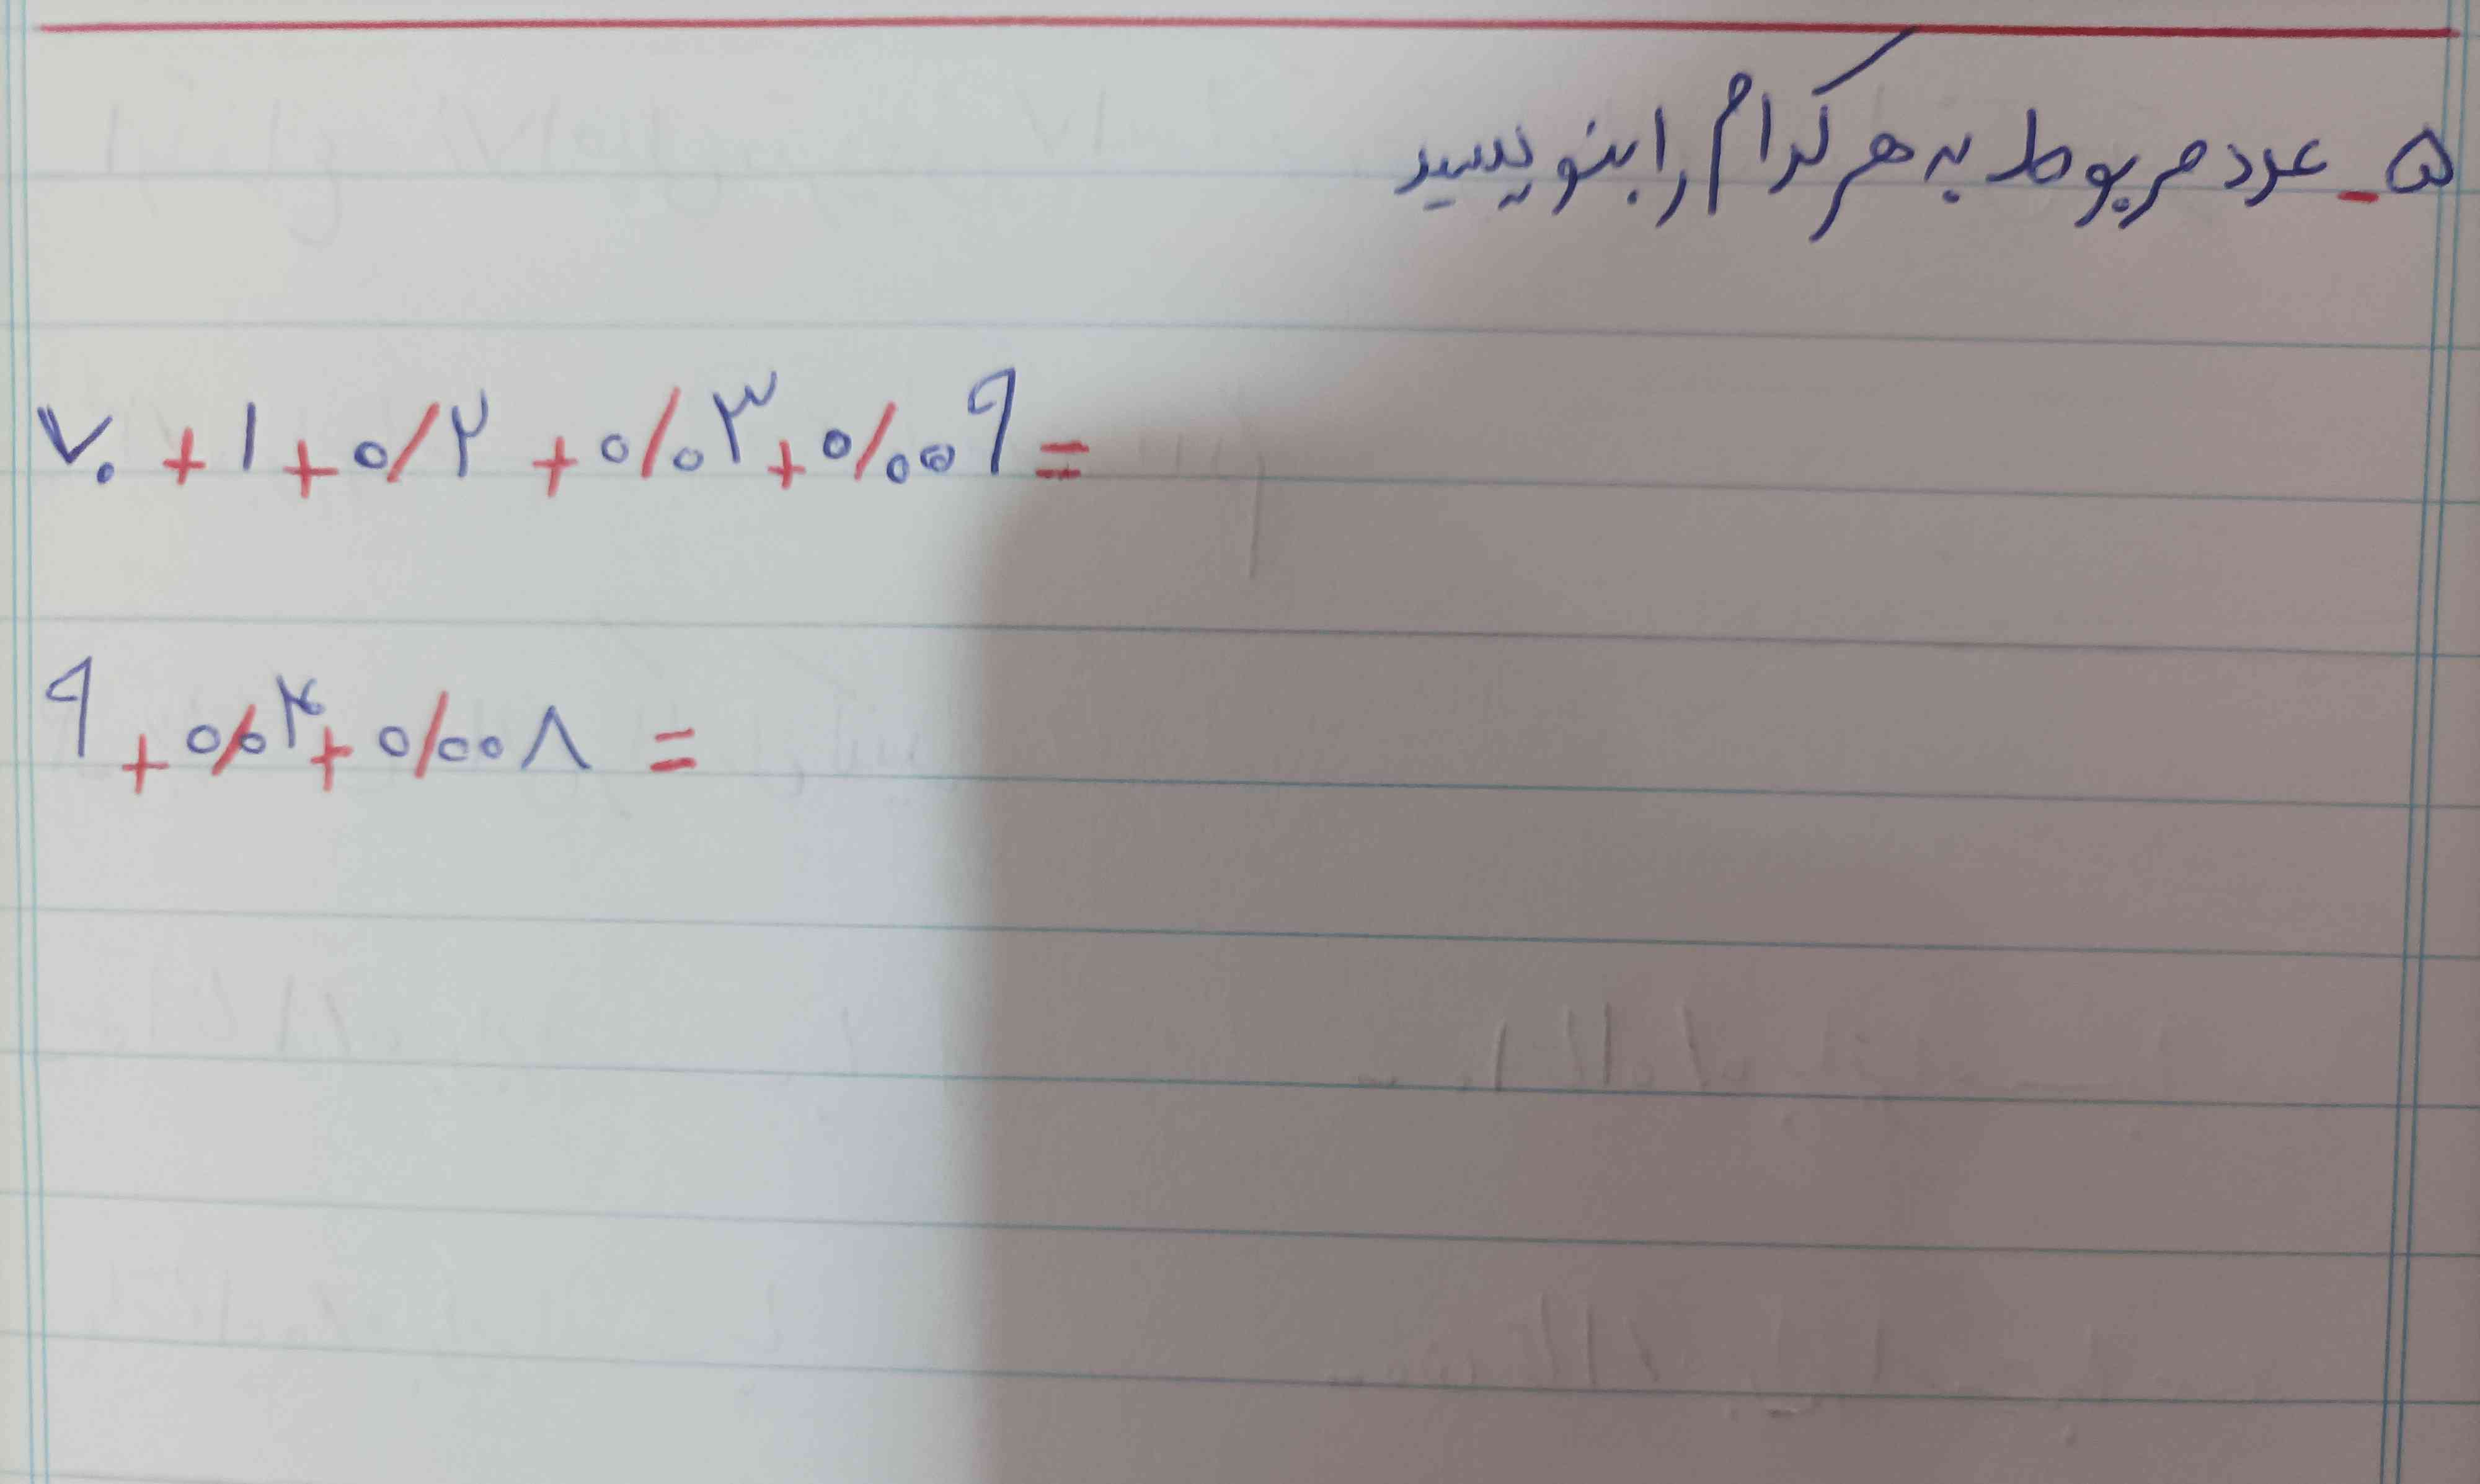 ۵_ عدد مربوط به هر کدام را بنویسید
۷۰ + ۱ + ۰/۲ + ۰/۰۳ + ۰/۰۰۹ =
۹ + ۰/۰۴ + ۰/۰۰۸ =